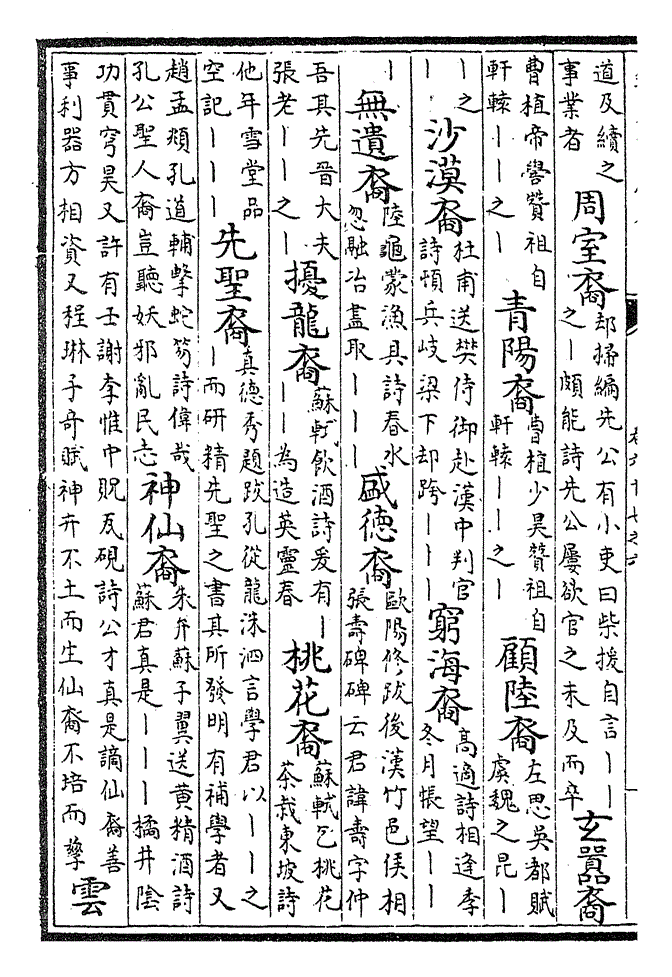 道及續之
事業者
周室裔
却掃編先公有小吏曰柴援自言——
之—頗能詩先公屢欲官之未及而卒
玄囂裔
曹植帝嚳贊祖自
軒轅——之—
青陽裔
曹植少昊贊祖自
軒轅——之—
顧陸裔
左思吳都賦
虞魏之昆—
—之
——
沙漠裔
杜甫送樊侍御赴漢中判官
詩頓兵岐梁下却跨———
窮海裔
高適詩相逢季
冬月悵望——
—
無遺裔
陸龜蒙漁具詩春水
忽融冶盡取———
盛德裔
歐陽修跋後漢竹邑侯相
張壽碑碑云君諱壽字仲
吾其先晉大夫
張老——之—
擾龍裔
蘇軾飲酒詩爰有—
——為造英靈春
桃花裔
蘇軾乞桃花
茶栽東坡詩
他年雪堂品
空記———
先聖裔
真德秀題跋孔從龍洙泗言學君以——之
—而研精先聖之書其所發明有補學者又
趙孟頫孔道輔擊蛇笏詩偉哉
孔公聖人裔豈聽妖邪亂民志
神仙裔
朱弁蘇子翼送黃精酒詩
蘇君真是———橘井陰
功貫穹昊又許有壬謝李惟中貺瓦硯詩公才真是謫仙裔善
事利器方相資又程琳子奇賦神卉不土而生仙裔不培而孽
雲